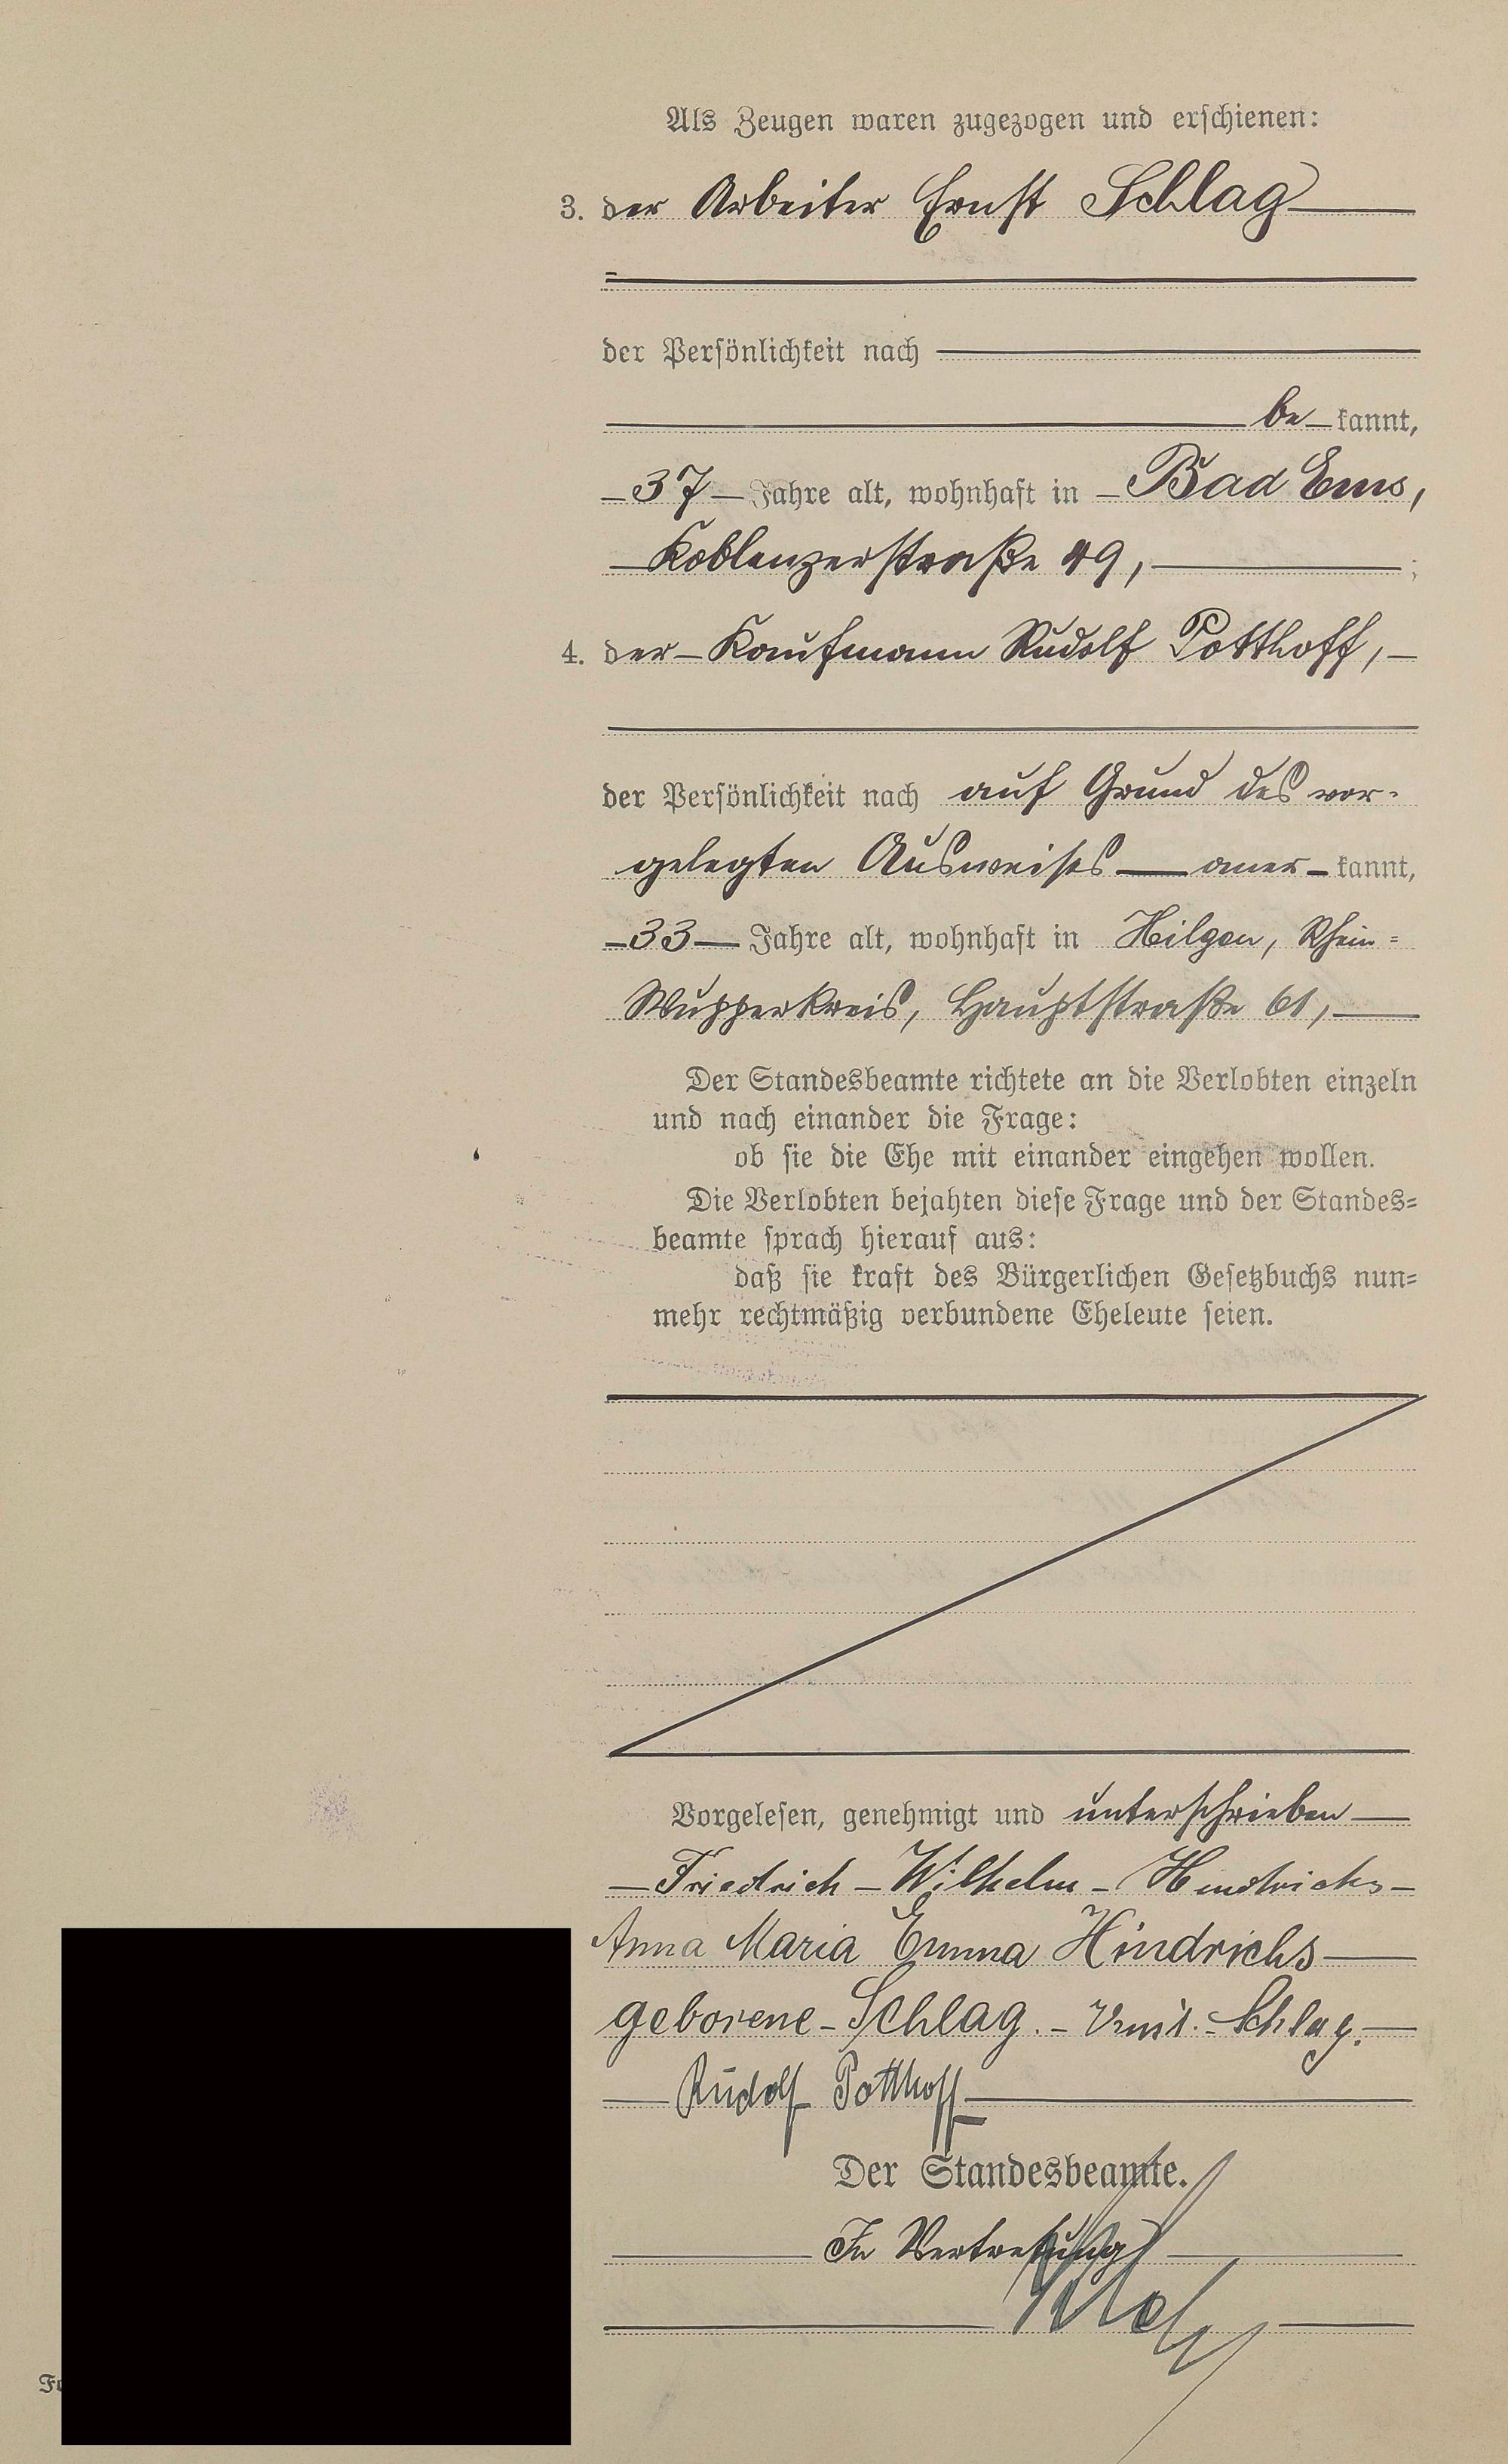 Als Zeugen waren zugezogen und erschienen:
3. der Arbeiter Ernst Schlag
der Persönlichkeit nach
be kannt,
37 Jahre alt, wohnhaft in Bad Ems,
Koblenzerstraße 49,
4. der Kaufmann Rudolf Potthoff,
der Persönlichkeit nach auf Grund des vor-
gelegten Ausweises aner kannt,
33 Jahre alt, wohnhaft in Hilgen, Rhein=
Wupperkreis, Hauptstraße 61,
Der Standesbeamte richtete an die Verlobten einzeln
und nach einander die Frage:
ob sie die Ehe mit einander eingehen wollen.
Die Verlobten bejahten diese Frage und der Standes=
beamte sprach hierauf aus:
daß sie kraft des Bürgerlichen Gesetzbuchs nun=
mehr rechtmäßig verbundene Eheleute seien.
Vorgelesen, genehmigt und unterschrieben
Friedrich Wilhelm Hindrichs
Anna Maria Emma Hindrichs
geborene Schlag. Schlag.
Rudolf Potthoff
Der Standesbeamte.
In Vertretung